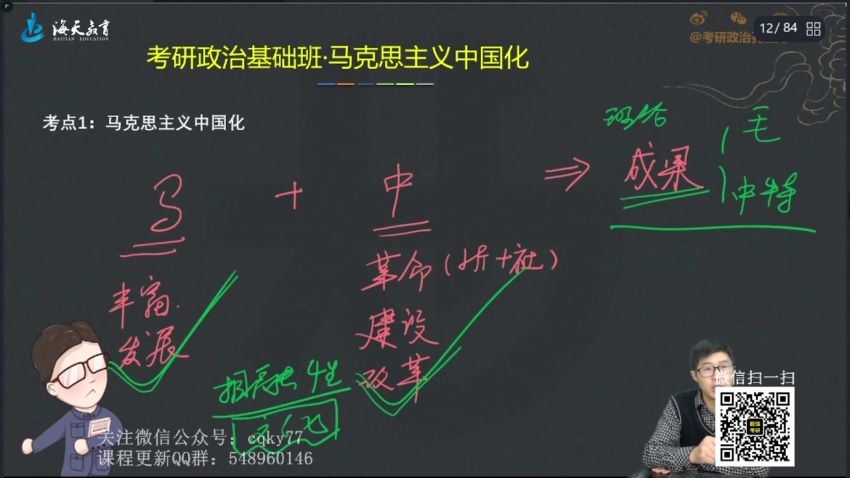 海天教育
HAITIAN EDUCATION
12/84
@考研政治
考研政治基础班·马克思主义中国化
考点1：马克思主义中国化
理论
成果
毛
中特
马 + 中 ⇒
丰富
发展
革命(新+社)
建设
改革
微信扫一扫
关注微信公众号：cqky77
课程更新QQ群：548960146